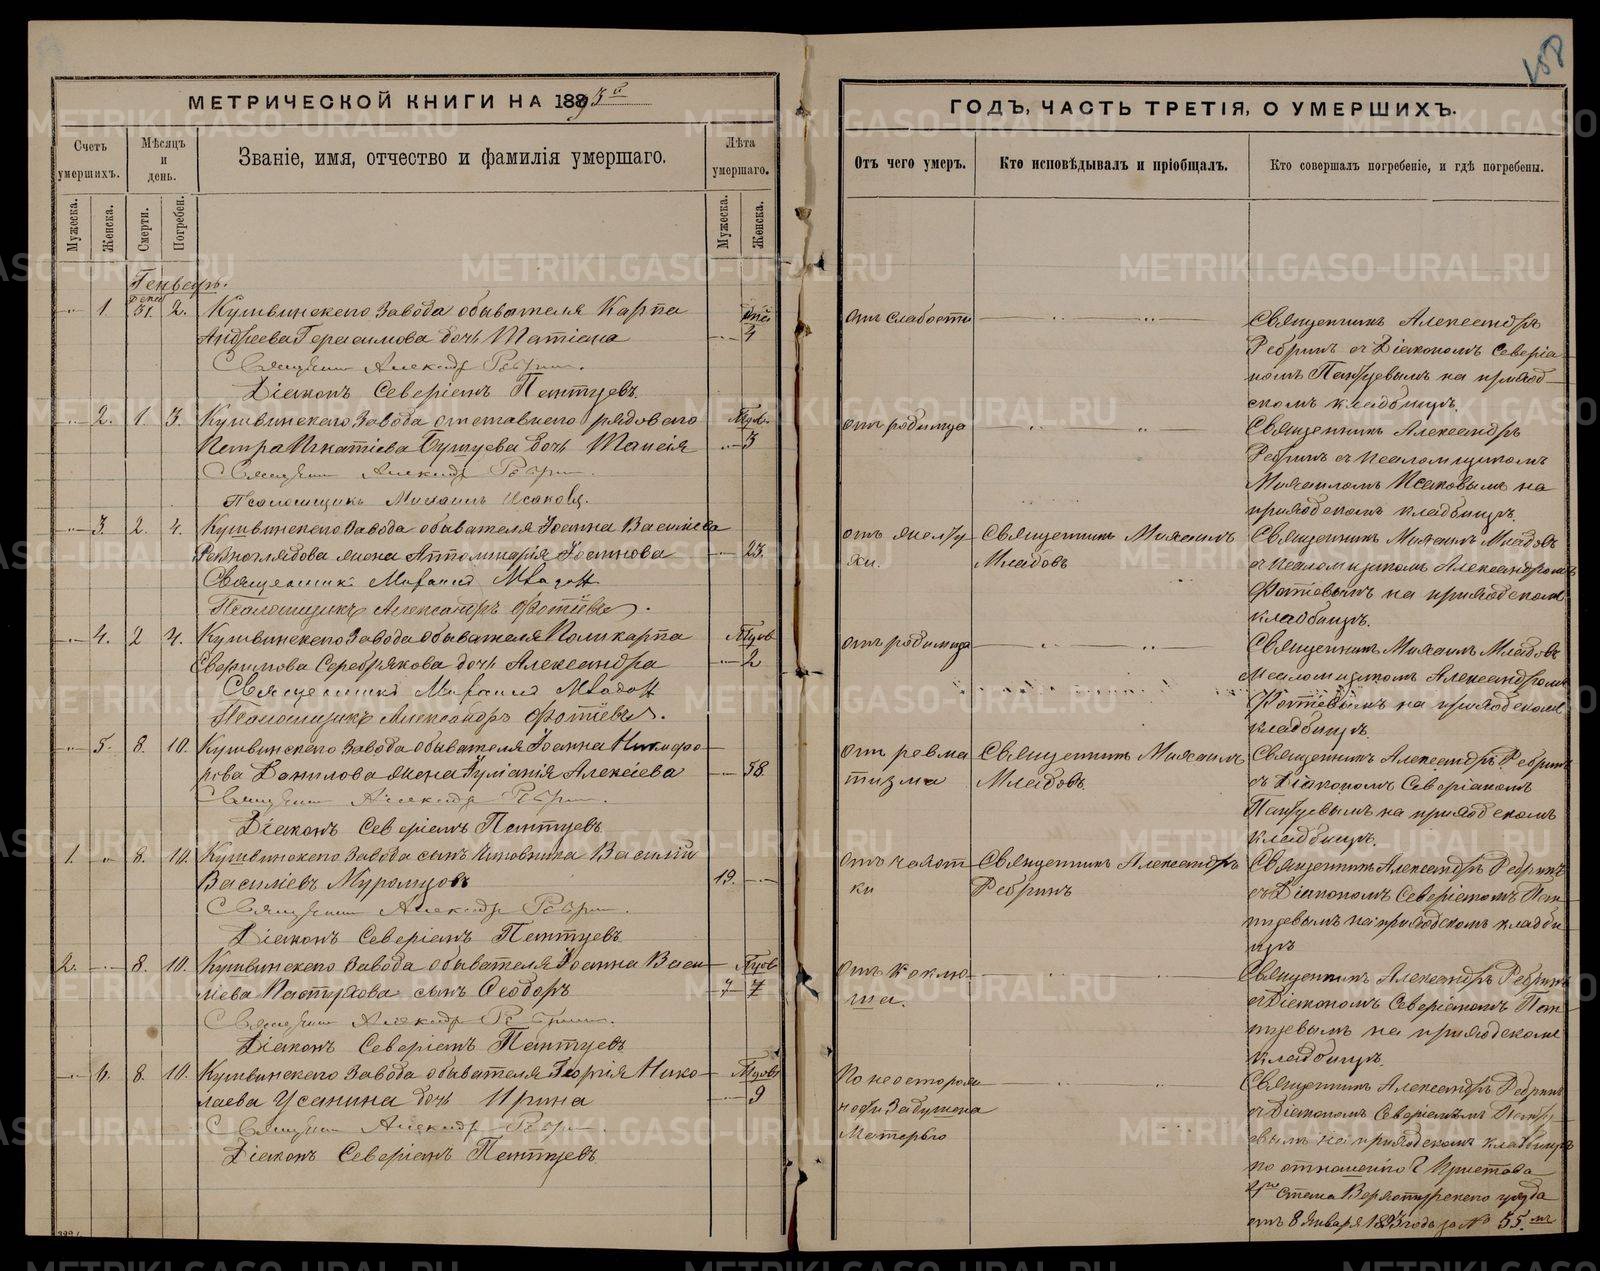 158
МЕТРИЧЕСКОЙ КНИГИ НА 1893й
ГОДЪ, ЧАСТЬ ТРЕТІЯ, О УМЕРШИХЪ.
Счетъ умершихъ.
Мѣсяцъ и день.
Званіе, имя, отчество и фамилія умершаго.
Лѣта умершаго.
Отъ чего умеръ.
Кто исповѣдывалъ и пріобщалъ.
Кто совершалъ погребеніе, и гдѣ погребены.
Мужеска.
Женска.
Смерти.
Погребен.
Мужеска.
Женска.
Генварь.
1. 31. 2. Кушвинскаго Завода обывателя Карпа
Андреева Герасимова дочь Татіана 4
Священникъ Александръ Ребринъ.
Діаконъ Северіанъ Пантуевъ.
отъ слабости
Священникъ Александръ
Ребринъ съ Діакономъ Северіа-
номъ Пантуевымъ на приход-
скомъ кладбищѣ.
2. 1. 3. Кушвинскаго Завода отставнаго рядоваго
Петра Игнатіева дочь Таисія 3
Священникъ Александръ Ребринъ
Псаломщикъ Михаилъ Исаковъ.
отъ родимца
Священникъ Александръ
Ребринъ съ псаломщикомъ
Михаиломъ Исаковымъ на
приходскомъ кладбищѣ.
3. 2. 4. Кушвинскаго Завода обывателя Іоанна Василіева
жена Іоаннова 23.
Священникъ Михаилъ Младовъ
Псаломщикъ Александръ Фотіевъ.
Священникъ Михаилъ
Младовъ
Священникъ Михаилъ Младовъ
съ псаломщикомъ Александромъ
Фотіевымъ на приходскомъ
кладбищѣ.
4. 2 4. Кушвинскаго Завода обывателя Поликарпа
Серебрякова дочь Александра 2
Священникъ Михаилъ Младовъ
Псаломщикъ Александръ Фотіевъ.
отъ родимца
Священникъ Михаилъ Младовъ
псаломщикомъ Александромъ
Фотіевымъ на приходскомъ
кладбищѣ.
5. 8. 10. Кушвинскаго Завода обывателя Іоанна Никифо-
рова Данилова жена Іуліанія Алексіева 58.
Священникъ Александръ Ребринъ.
Діаконъ Северіанъ Пантуевъ
отъ ревма
тизма
Священникъ Михаилъ
Младовъ.
Священникъ Александръ Ребринъ
съ Діакономъ Северіаномъ
Пантуевымъ на приходскомъ
кладбищѣ.
1. 8. 10. Кушвинскаго Завода сынъ чиновника Василій
Василіевъ Муромцовъ 19.
Священникъ Александръ Ребринъ.
Діаконъ Северіанъ Пантуевъ
отъ чахот
ки
Священникъ Александръ
Ребринъ
Священникъ Александръ Ребринъ
съ Діакономъ Северіаномъ Пан-
туевымъ на приходскомъ кладби
щѣ
2. 8. 10. Кушвинскаго Завода обывателя Іоанна Васи
ліева Пастухова сынъ Ѳеодоръ 7
Священникъ Александръ Ребринъ.
Діаконъ Северіанъ Пантуевъ
отъ коклю-
ша.
Священникъ Александръ Ребринъ
съ Діакономъ Северіаномъ Пан-
туевымъ на приходскомъ
кладбищѣ.
6. 8. 10. Кушвинскаго Завода обывателя Георгія Нико-
лаева Усанина дочь Ирина 9
Священникъ Александръ Ребринъ.
Діаконъ Северіанъ Пантуевъ
По неосторож
ности задушена
Матерью
Священникъ Александръ Ребринъ
съ Діакономъ Северіаномъ Панту-
евымъ на приходскомъ кладбищѣ
по отношенію Г Пристава
4го стана Верхотурскаго уѣзда
отъ 8 Января 1893 года за № 55.мъ
METRIKI.GASO-URAL.RU